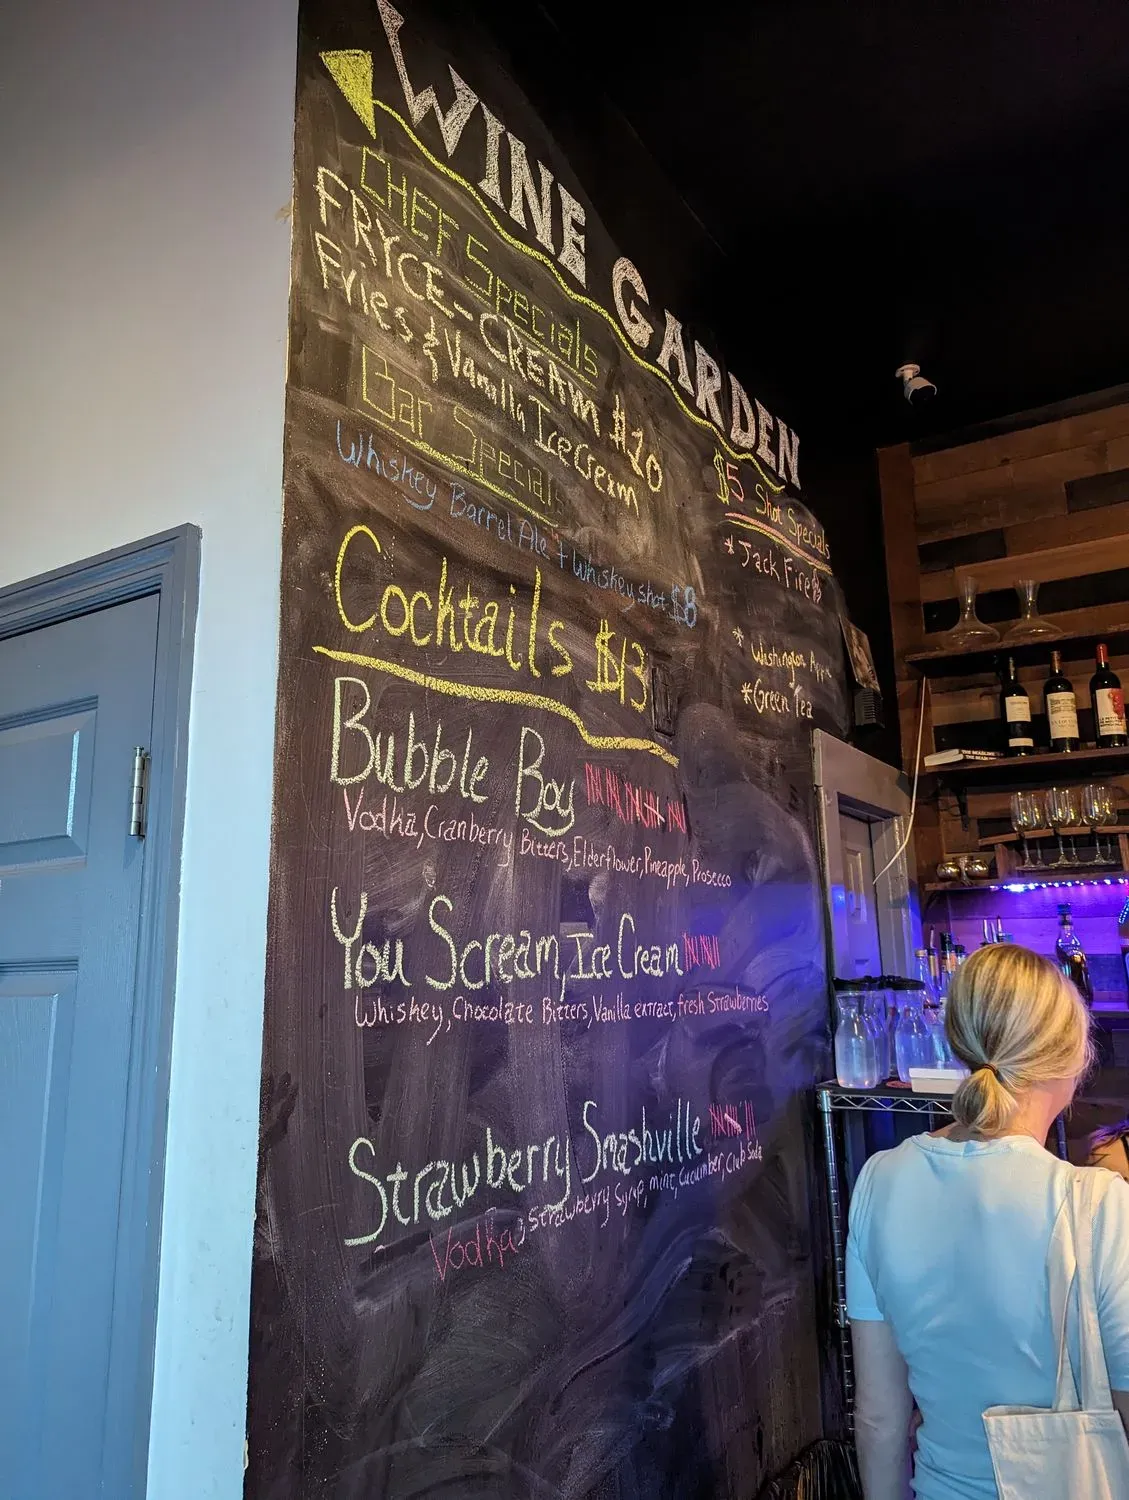 WINE GARDEN
CHEF Specials
FRYCE-CREAM $10
Fries & Vanilla Ice Cream
Bar Specials
Whiskey Barrel Ale + Whiskey shot $8
$5 Shot Specials
* Jack Fire
* Washington
* Green Tea
Cocktails $13
Bubble Boy
Vodka, Cranberry Bitters, Elderflower, Pineapple, Prosecco
You Scream, Ice Cream
Whiskey, Chocolate Bitters, Vanilla extract, fresh Strawberries
Strawberry Smashville
Vodka, Strawberry Syrup, mint, Cucumber, Club Soda